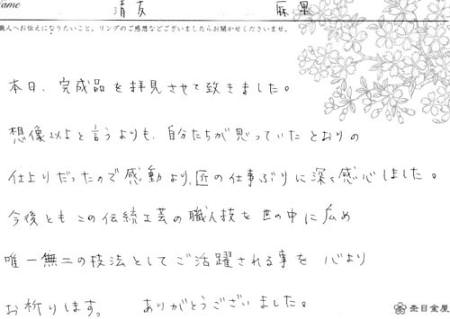 Name 清友 麻里
職人へお伝えになりたいこと。リングのご感想などございましたらお聞かせくださいませ。
本日、完成品を拝見させて致きました。
想像以上と言うよりも、自分たちが思っていたとおりの
仕上りだったので感動より、匠の仕事ぶりに深く感心しました。
今後ともこの伝統工芸の職人技を世の中に広め
唯一無二の技法としてご活躍される事を 心より
お祈りします。 ありがとうございました。
杢目金屋